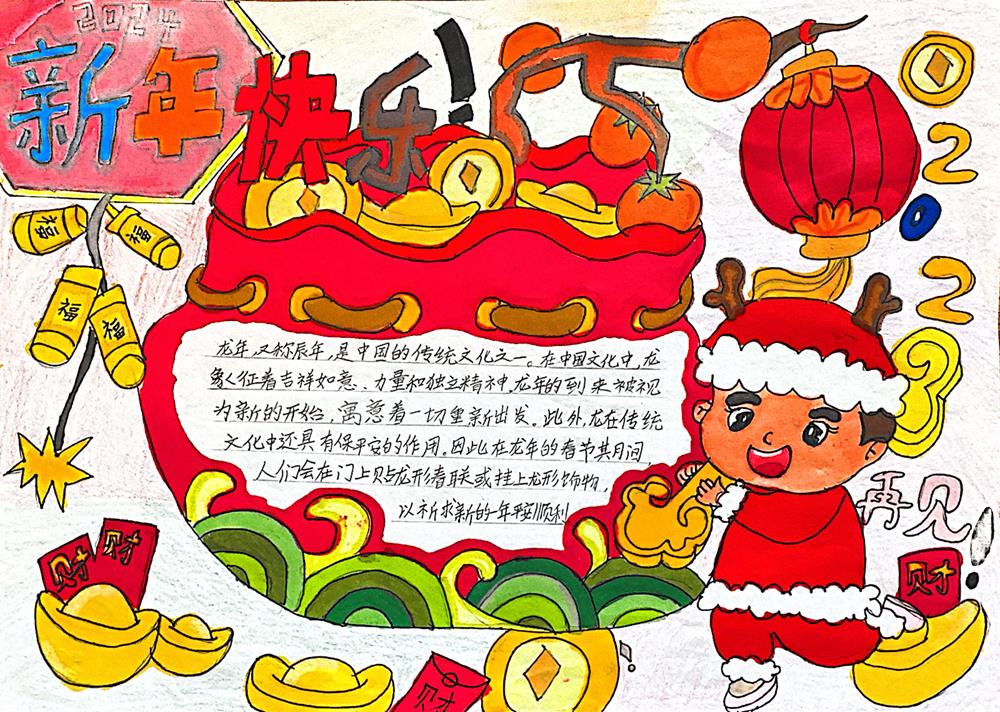 2024
新年快乐!
福
福
福
福
龙年,又称辰年,是中国的传统文化之一。在中国文化中,龙
象征着吉祥如意、力量和独立精神,龙年的到来被视
为新的开始,寓意着一切重新出发。此外,龙在传统
文化中还具有保平安的作用。因此在龙年的春节其月间,
人们会在门上贴龙形春联或挂上龙形饰物,
以祈求新的一年平安顺利
2023
再见!
财
财
财
财